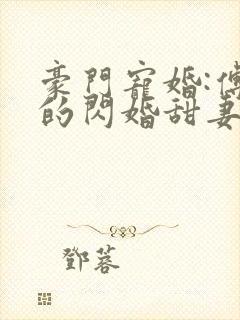 豪門寵婚:傅
的閃婚甜妻
鄧蓉